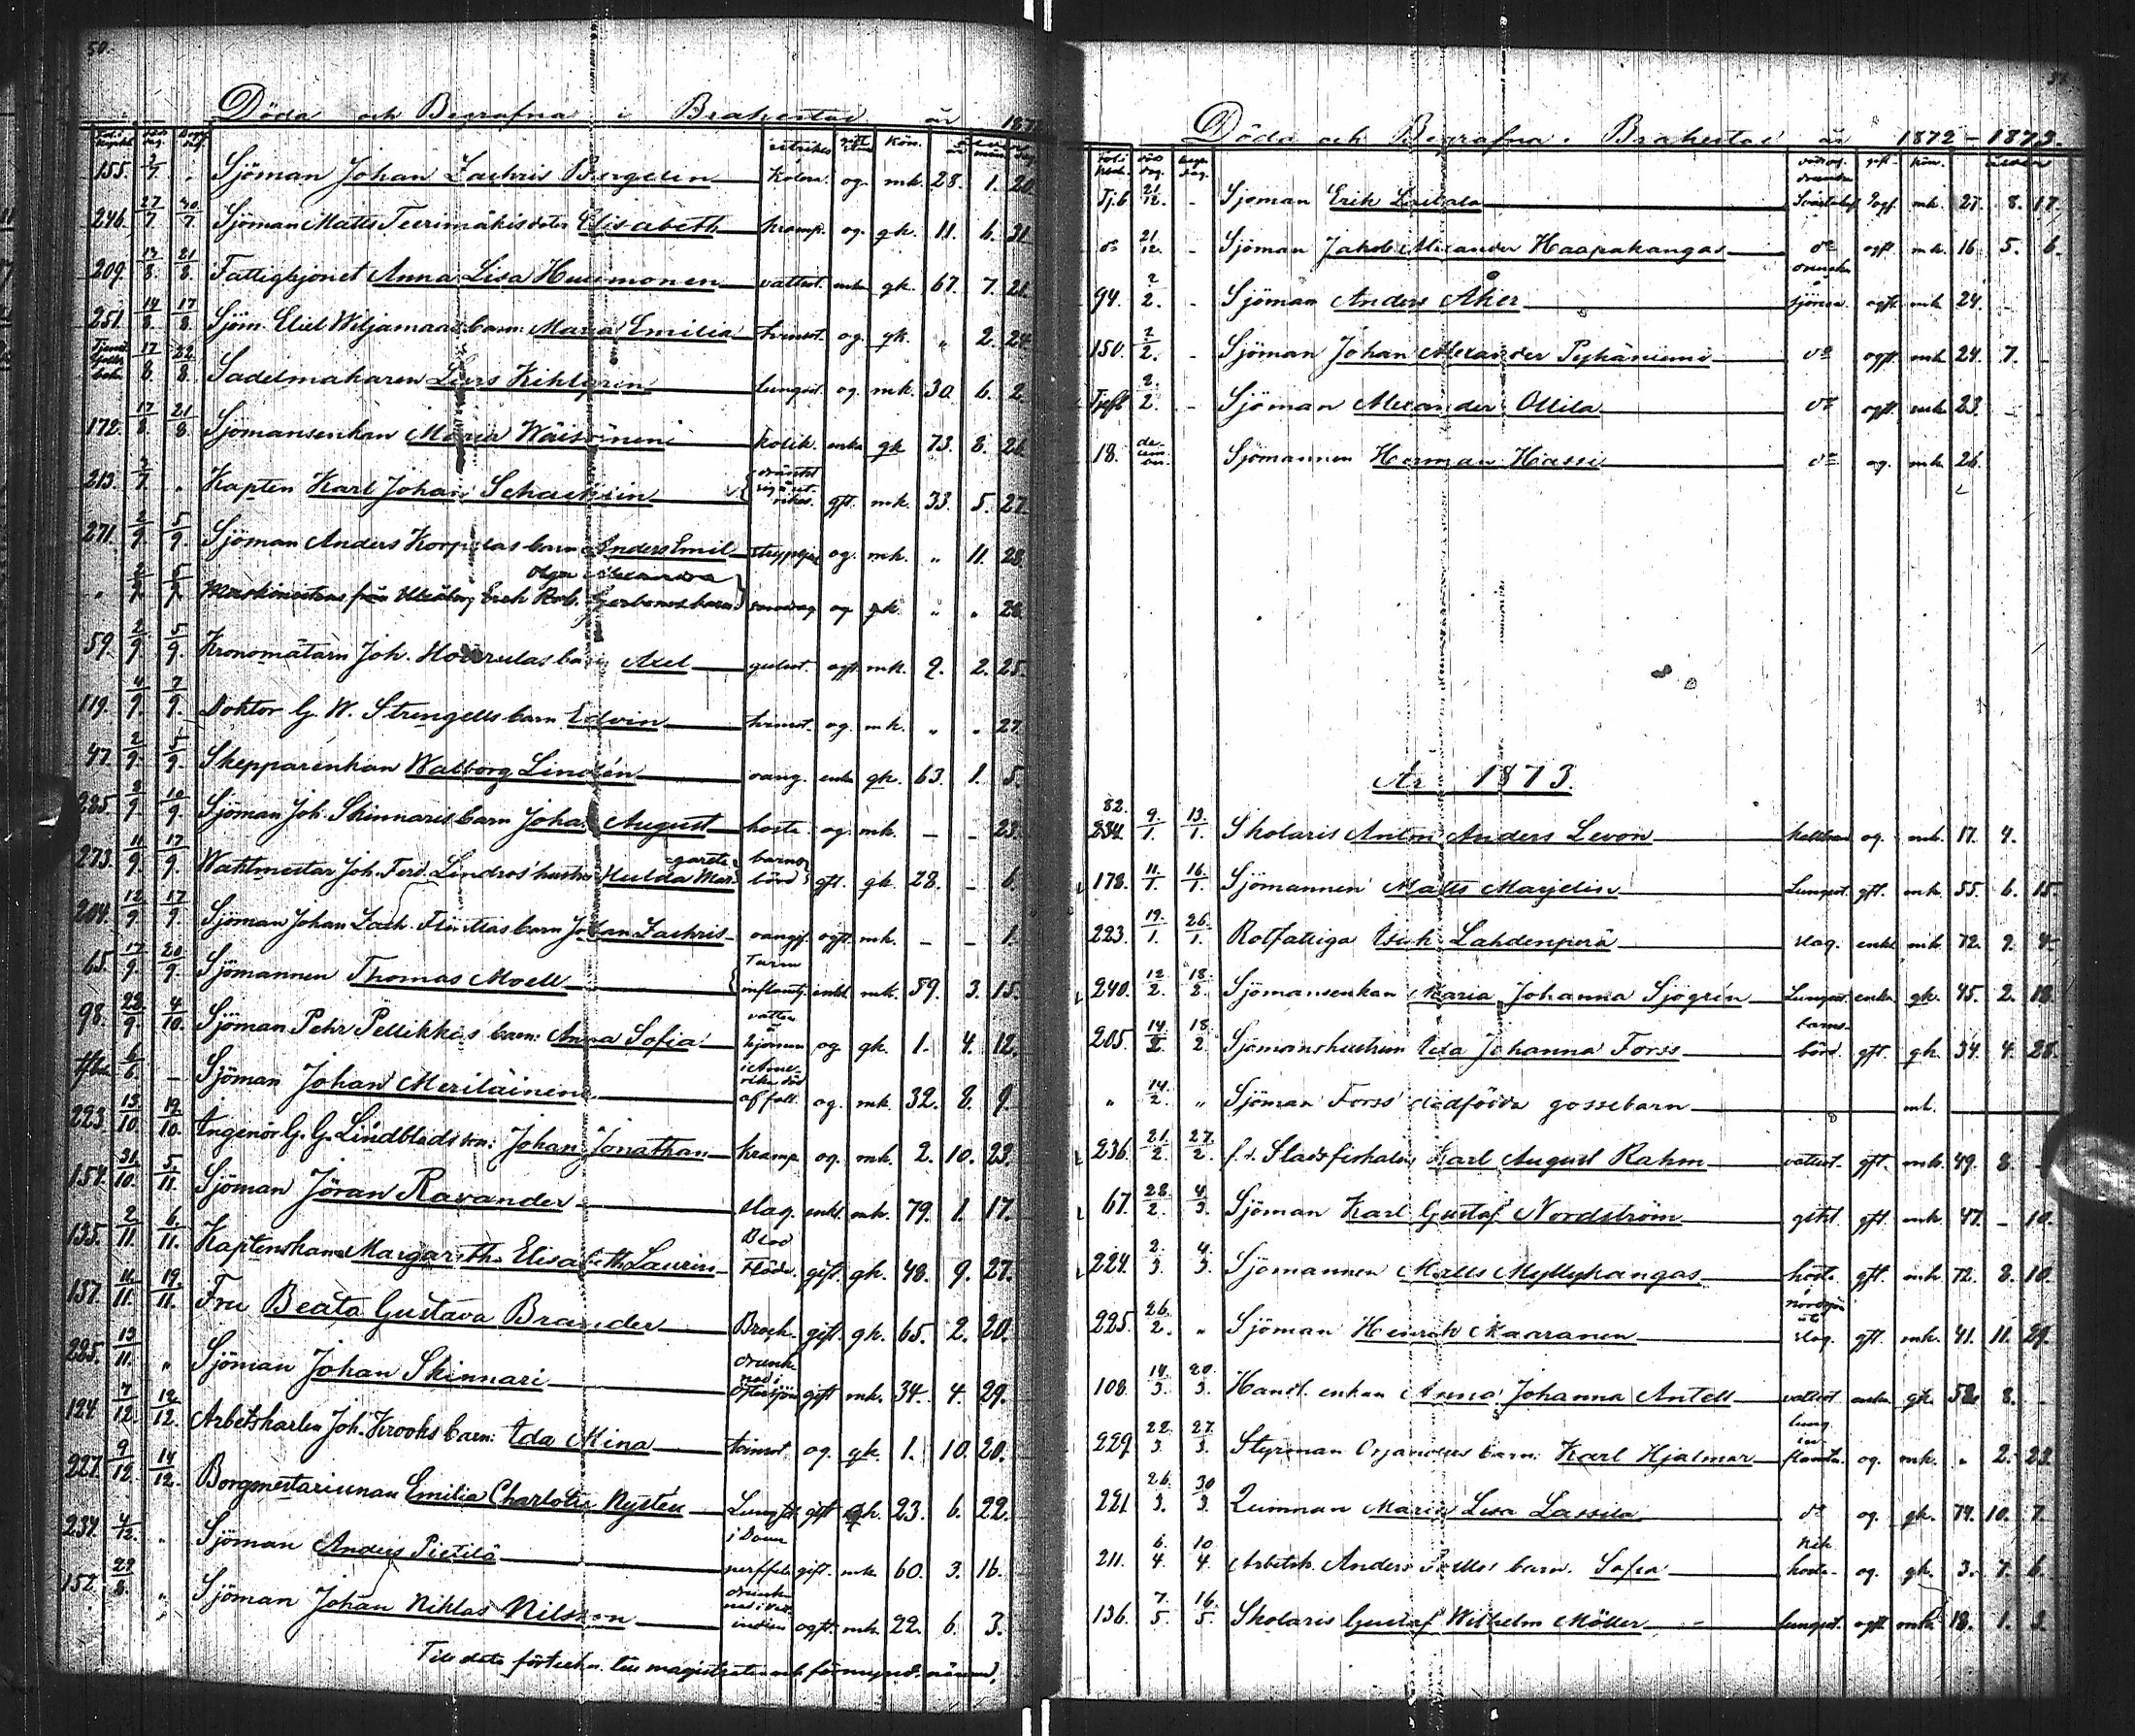 50.
Döda och Begrafna i Brahestad år 1872
155. 2/7 " Sjöman Johan Zachris Bergelin Kolera og. mk. 28. 1. 20.
246. 27/7 30/7 Sjöman Matts Teerimäkis doter Elisabeth kramp. og. qk. 11. 6. 21.
209. 13/8. 21/8. Fattighjonet Anna Lisa Huumonen vattust. enka qk. 67. 7. 21.
251. 14/8. 17/8. Sjöm. Eliel Wiljamaas barn: Maria Emilia bröst. og. qk. " 2. 24.
17/8. 22/8. Sadelmakaren Lars Kihlgren Lungsot og. mk. 30. 6. 2.
172. 17/8. 21/8. Sjömansenkan Maria Wäisänen kolik. enka qk 73. 8. 21.
213. 2/7. " Kapten Karl Johan gft. mk. 33. 5. 27.
271. 2/9. 5/9. Sjöman Anders Korpelas barn Anders Emil strypsju og. mk. " 11. 28.
Olga Alexandra
" 5/9. Maskinistens från Uleåborg Erik Rob. barn og. qk. " " 26.
59. 2/9. 5/9. Kronomätarn Joh. barn Axel gulsot. ogft. mk. 9. 2. 25.
119. 4/9. 7/9. Doktor G. W. Strengells barn Edvin og. mk. " " 27.
47. 2/9. 5/9. Skepparenkan Walborg Lindén enka qk. 63. 1. 5.
285. 10/9. Sjöman Joh. Skinnaris barn Johan August hosta og. mk. – – 23.
gareta barns
273. 11/9. 17/9. Waktmestar Joh. Ferd. Lindros' hustru Hulda Mar- börd gft. qk. 28. – 6.
204. 12/9. 17/9. Sjöman Johan Zach. barn Johan Zachris ogft. mk. – – 1.
Tarm
65. 17/9. 20/9. Sjömannen Thomas Moell inflamtj. enkl. mk. 59. 3. 15.
vatten
98. 22/9. 4/10. Sjöman Pehr Pellikkas barn: Anna Sofia i hjärnan og. qk. 1. 4. 12.
6/6. – Sjöman Johan Meriläinen af fall. og. mk. 32. 8. 9.
223. 13/10. 19/10. Ingenör G. G. Lindblads son: Johan Jonathan kramp. og. mk. 2. 10. 23.
154. 31/10. 5/11. Sjöman Jöran Ravander slag. enkl. mk. 79. 1. 17.
Blod
135. 2/11. 6/11. Margaretha Elisabeth Laurin flöde. gift. qk. 48. 9. 27.
137. 11/11. 19/11. Fru Beata Gustava Brander Brock. gift. qk. 65. 2. 20.
drunk-
nad i
285. 13/11. " Sjöman Johan Skinnari Östersjön gift mk. 34. 4. 29.
124. 7/12. 12/12. Arbetskarlen Joh. Krooks barn: Ida Mina og. qk. 1. 10. 20.
227. 9/12. 14/12. Borgmestarinnan Emilia Charlotta Nystén Lungst. gift qk. 23. 6. 22.
234. 4/2. " Sjöman Anders Pietilä gift. mk. 60. 3. 16.
152. 22/8. " Sjöman Johan Niklas Nilsson indien ogft. mk. 22. 6. 3.
Till dato förteckn. till magistraten och förmynd. nämnd.
Döda och Begrafna i Brahestad år 1872–1873.
Tj.b 21/12. – Sjöman Erik Laibala ogf. mk. 27. 8. 17.
do 21/12. – Sjöman Jakob Alexander Haapakangas do ogft. mk. 16. 5. 6.
94. 2/2. – Sjöman Anders Åker ogft. mk. 24. –
150. 2/2. – Sjöman Johan Alexander Pyhäniemi do ogft. mk. 24. 7. –
2/2. – Sjöman Alexander Ollila do ogft. mk. 23. – –
18. decem-ber. Sjömannen Herman Hassi do og. mk. 26.
År 1873.
82.
234. 9/1. 13/1. Skolaris Anton Anders Levon kallbrand og. mk. 17. 4.
178. 11/1. 16/1. Sjömannen Matts Marjelin Lungsot. gft. mk. 55. 6. 15.
223. 19/1. 26/1. Rotfattiga Erik Lahdenperä slag. enkl. mk. 72. 9. 4.
240. 12/2. 18/2. Sjömansenkan Maria Johanna Sjögrén Lungsot. enka qk. 45. 2. 18.
barns-
205. 14/2. 18/2. Sjömanshustrun Ida Johanna Forss börd gft. qk. 34. 4. 25.
" 14/2. " Sjöman Forss' dödfödda gossebarn mk.
236. 21/2. 27/2. f.d. Stadsfiskalen Karl August Rahm vattust. gft. mk. 49. 8. –
67. 28/2. 4/3. Sjöman Karl Gustaf Nordström gikt. gft. mk. 47. – 10.
224. 2/3. 9/3. Sjömannen Matts Myllykangas hosta gft. mk. 72. 8. 10.
225. 26/2. " Sjöman Henrik Kaaranen slag. gft. mk. 41. 11. 29.
108. 14/3. 20/3. Handl. enkan Anna Johanna Antell vattust. enka qk. 58. 8. –
lung
in
229. 22/3. 27/3. Styrman barn: Karl Hjalmar flamta. og. mk. " 2. 23.
221. 26/3. 30/3. Qvinnan Maria Lisa Lassila do og. qk. 74. 10. 7.
kik
211. 6/4. 10/4. Arbetsk. Anders barn. Sofia hosta. og. qk. 3. 7. 6.
136. 7/5. 16/5. Skolaris Gustaf Wilhelm Möller Lungsot. ogft. mk. 18. 1. 3.